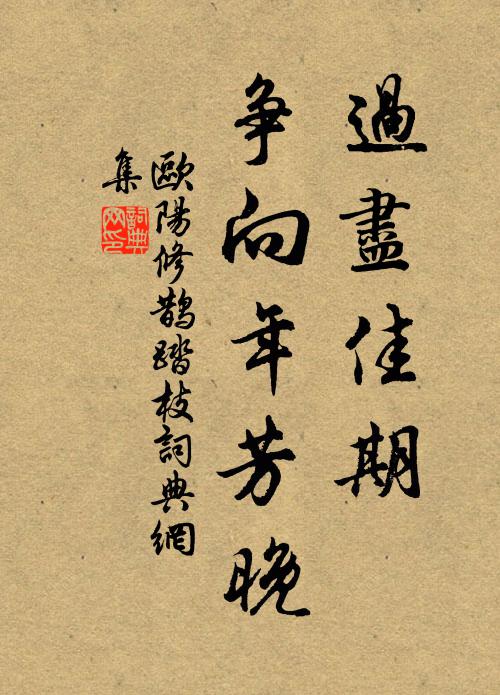 過盡佳期
争向年芳晚
歐陽修鵲踏枝詞典網
集
詞典
网印